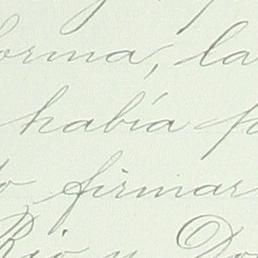 forma, la
había
firmar
Rio y Do